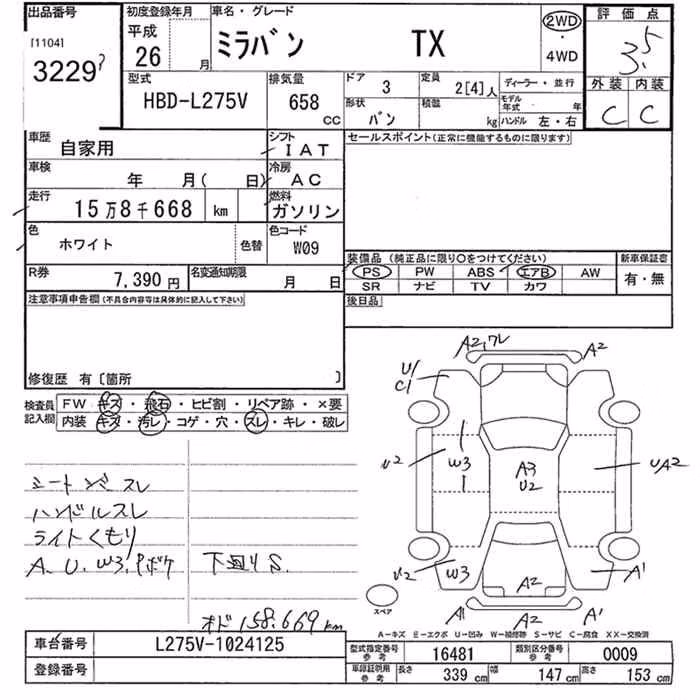 出品番号
[1104]
3229
初度登録年月
平成
26 月
車名・グレード
ミラバン TX
2WD
・
4WD
評価点
3.5
外装 内装
C C
型式
HBD-L275V
排気量
658 CC
ドア 3
形状 バン
定員 2[4]人
積載 kg
ディーラー・並行
モデル年式 年
ハンドル 左・右
車歴
自家用
シフト
IAT
車検
年 月( 日)
冷房
AC
走行
15万8千668 km
燃料
ガソリン
色
ホワイト
色替
色コード
W09
R券
7,390円
名変通知期限
月 日
セールスポイント(正常に機能するものに限ります)
装備品(純正品に限り○をつけてください)
PS PW ABS エアB AW
SR ナビ TV カワ
新車保証書
有・無
後日品
注意事項申告欄(不具合内容等は具体的に記入して下さい)
修復歴 有〔箇所 〕
検査員記入欄
FW キズ・飛石・ヒビ割・リペア跡・×要
内装 キズ・汚レ・コゲ・穴・スレ・キレ・破レ
ハンドルスレ
ライトくもり
A. U. W3.
下廻りS.
オド158,669km
A2,ワレ
A2
U1
C1
U2
W3
A3
U2
UA2
U2
W3
A2
A1
A1
A2
A1
スペア
A-キズ E-エクボ U-凹み W-補修跡 S-サビ C-腐食 XX-交換済
車台番号
L275V-1024125
登録番号
型式指定番号 参考
16481
類別区分番号 参考
0009
車庫証明用 参考
長さ 339 cm 幅 147 cm 高さ 153 cm